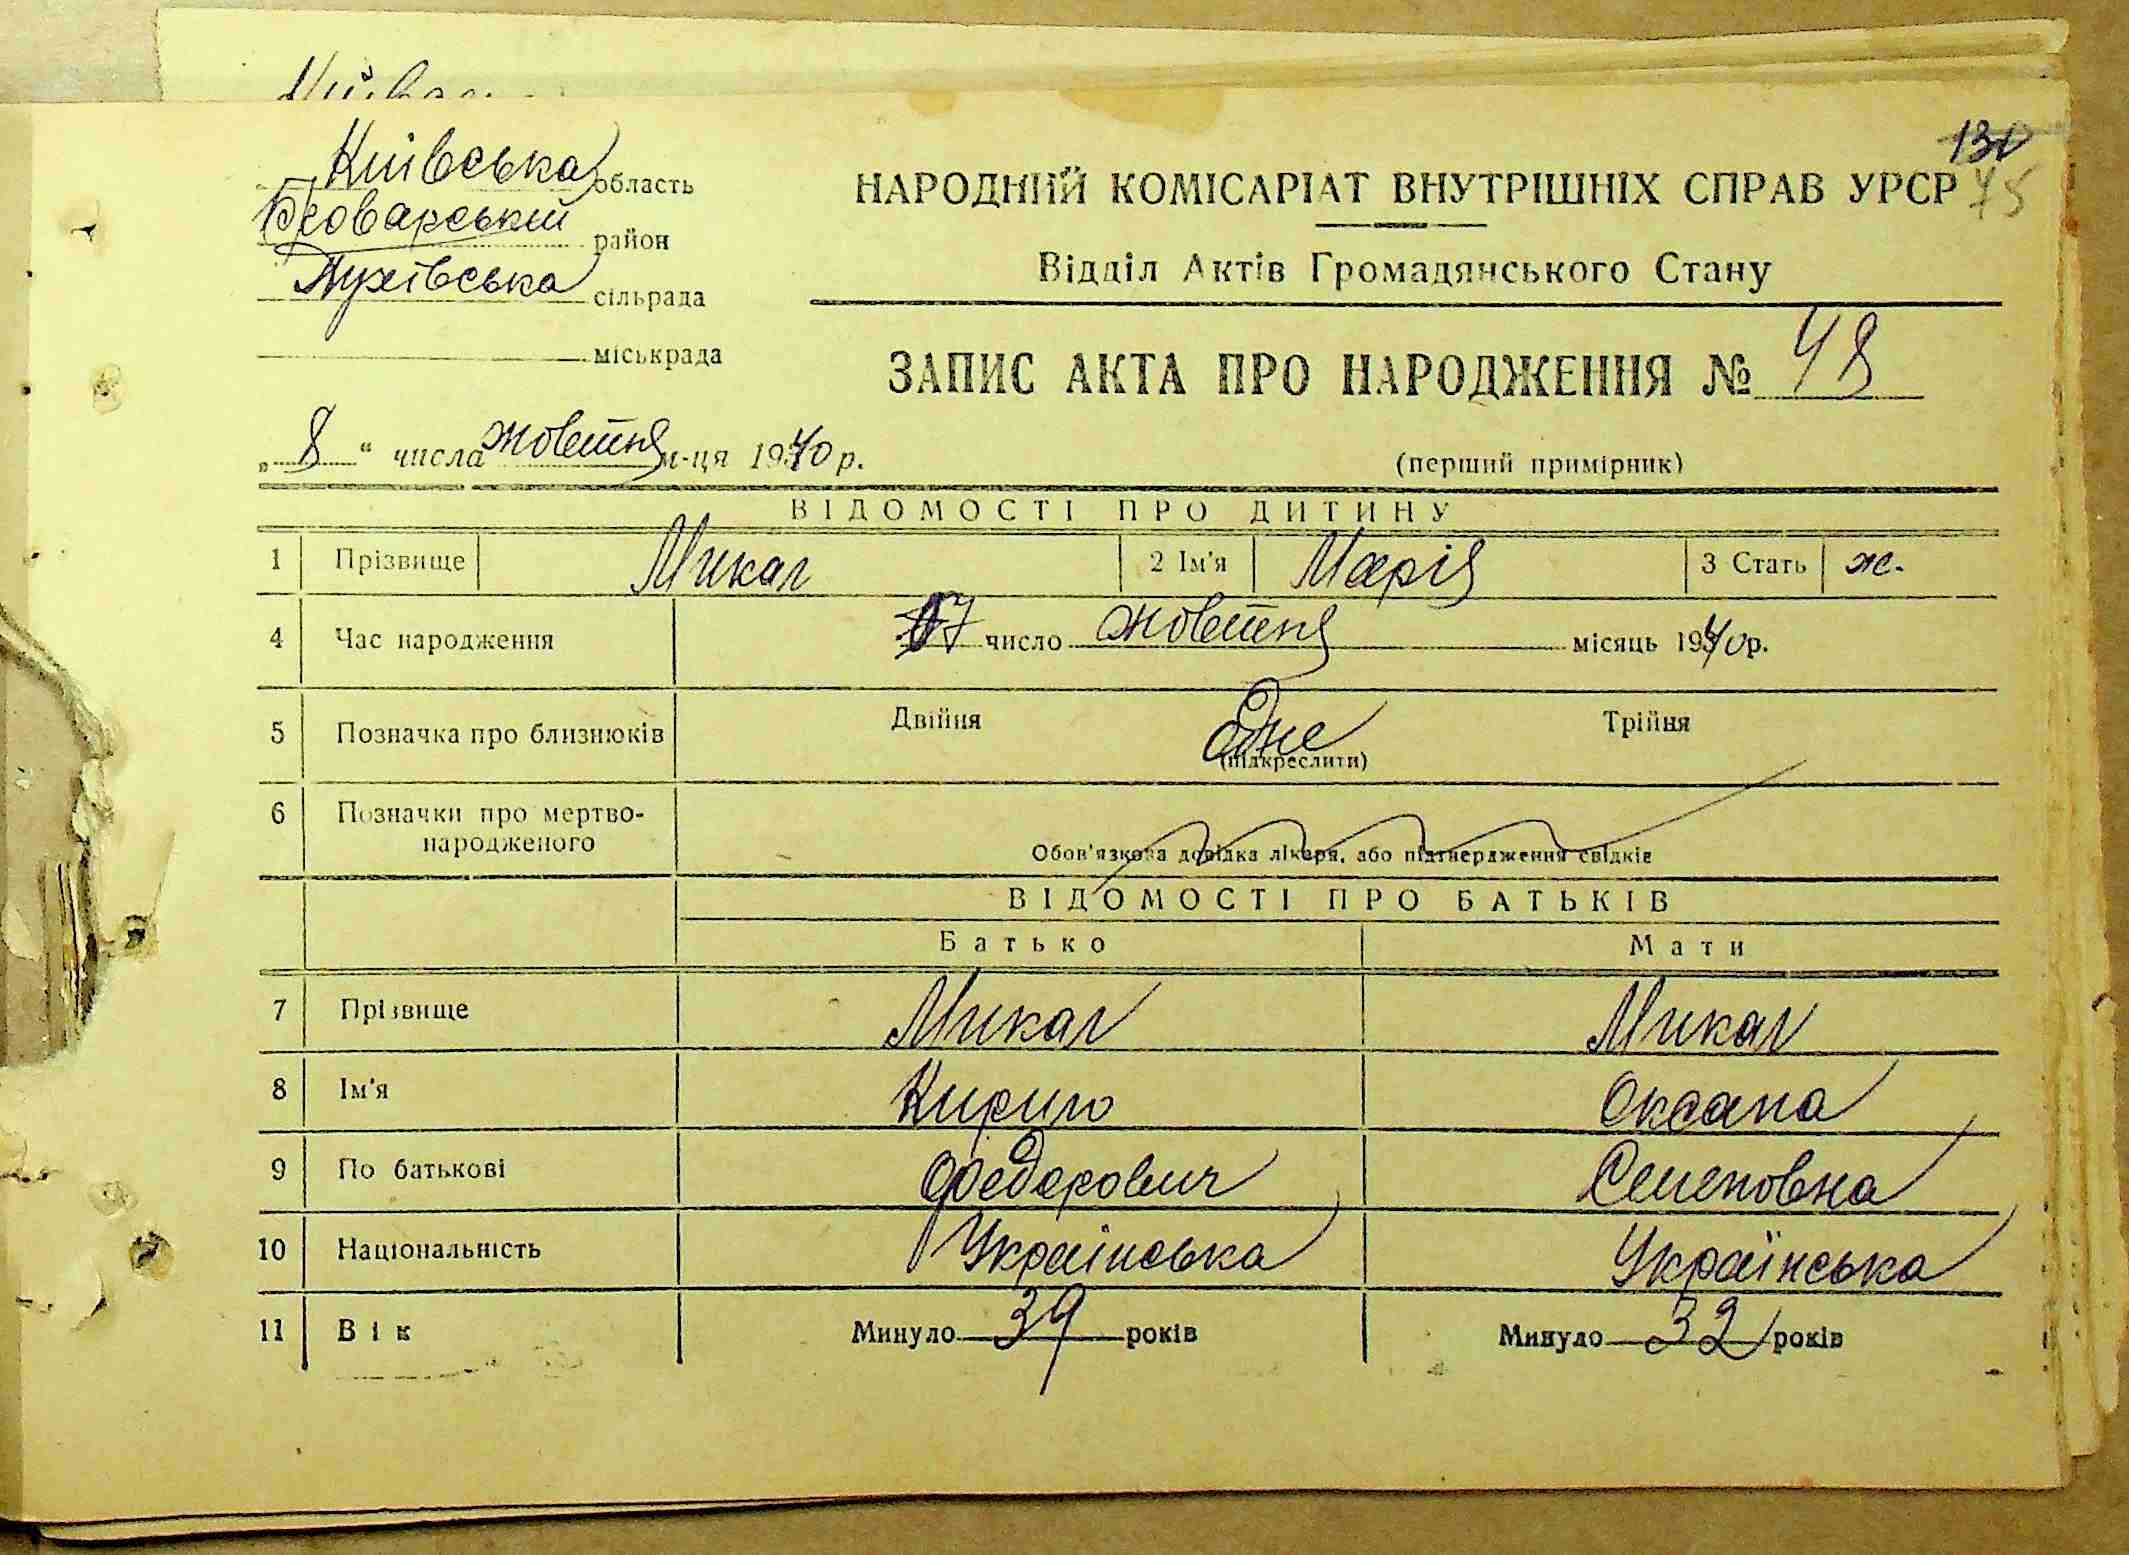 Київська область
Броварський район
Пухівська сільрада
міськрада
НАРОДНИЙ КОМІСАРІАТ ВНУТРІШНІХ СПРАВ УРСР
75
Відділ Актів Громадянського Стану
ЗАПИС АКТА ПРО НАРОДЖЕННЯ № 48
„8“ числа жовтня м-ця 1940 р.
(перший примірник)
ВІДОМОСТІ ПРО ДИТИНУ
1 Прізвище Микал 2 Ім'я Марія 3 Стать ж.
4 Час народження 07 число жовтня місяць 1940 р.
5 Позначка про близнюків Двійня одне Трійня
(підкреслити)
6 Позначки про мертво-
народженого
Обов'язкова довідка лікаря, або підтвердження свідків
ВІДОМОСТІ ПРО БАТЬКІВ
Батько Мати
7 Прізвище Микал Микал
8 Ім'я Кирило Оксана
9 По батькові Федорович Семеновна
10 Національність Українська Українська
11 Вік Минуло 39 років Минуло 32 років